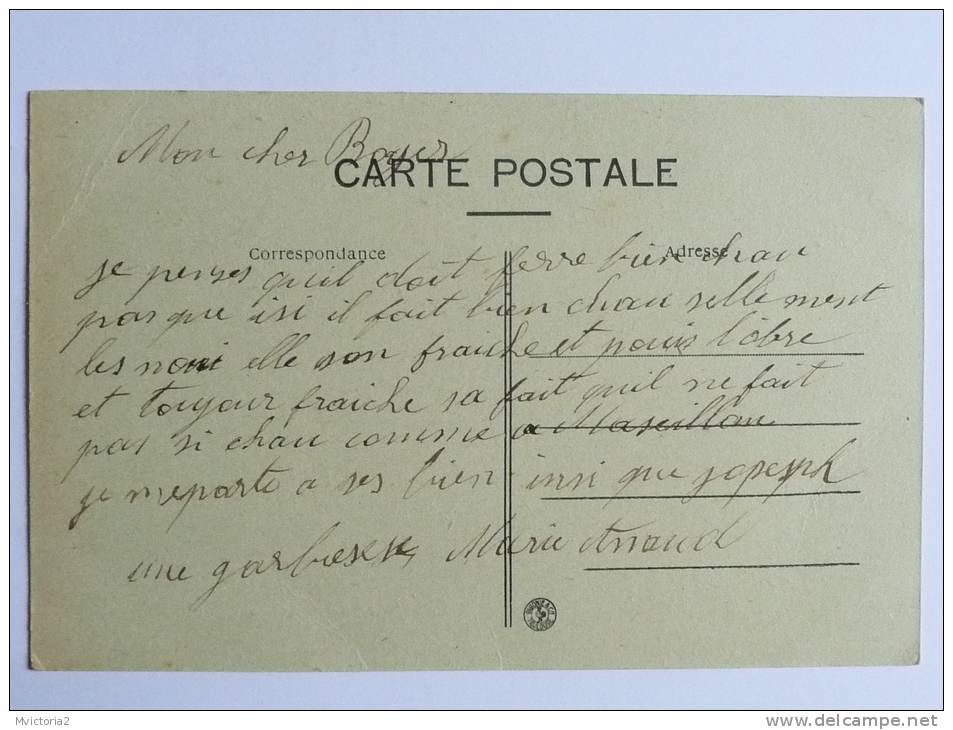 Mon cher Boyer
CARTE POSTALE
Correspondance
Adresse
je penses quil doit ferre bien chau
pas que isi il fait bien chau selle ment
les noui elle son fraiche et puis l'obre
et toujour fraiche sa fait quil ne fait
pas si chau comme a Maseillan
je meporte a ses bien insi que jopesph
une garbiesse Marie Arnaud
Mvictoria2
www.delcampe.net